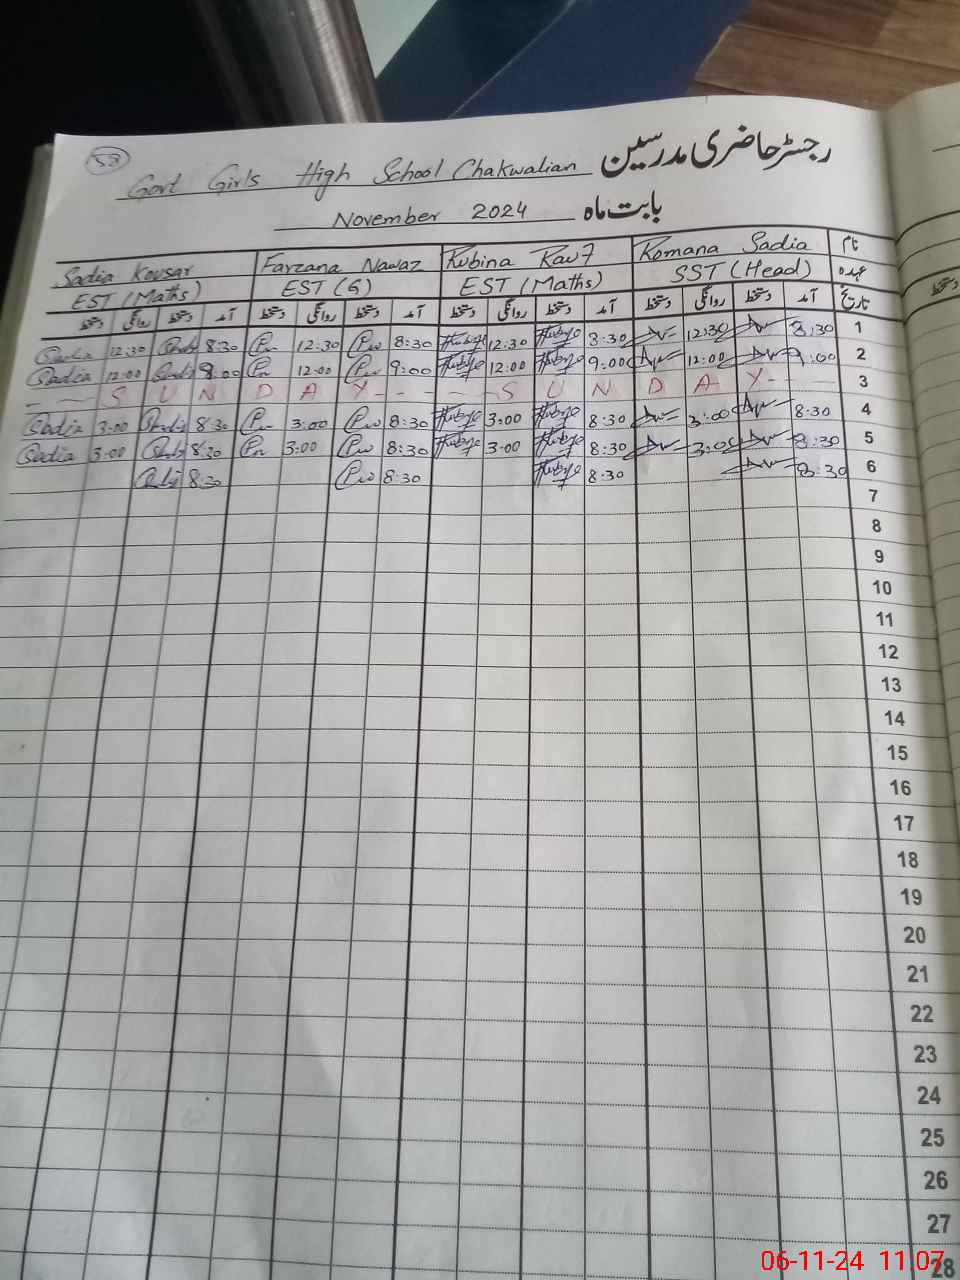 53
رجسٹر حاضری مدرسین Govt Girls High School Chakwalian
بابت ماہ November 2024
نام Romana Sadia Rubina Rauf Farzana Nawaz Sadia Kousar
عہدہ SST (Head) EST (Maths) EST (G) EST (Maths)
تاریخ آمد دستخط روانگی دستخط آمد دستخط روانگی دستخط آمد دستخط روانگی دستخط آمد دستخط روانگی دستخط
1 8:30 12:30 8:30 12:30 8:30 12:30 8:30 12:30 Sadia
2 9:00 12:00 9:00 12:00 9:00 12:00 8:00 12:00 Sadia
3 S U N D A Y - - - S U N D A Y - -
4 8:30 3:00 8:30 3:00 8:30 3:00 8:30 3:00 Sadia
5 8:30 3:00 8:30 3:00 8:30 3:00 8:30 3:00 Sadia
6 8:30 8:30 8:30 8:30
7
8
9
10
11
12
13
14
15
16
17
18
19
20
21
22
23
24
25
26
27
28
06-11-24 11:07